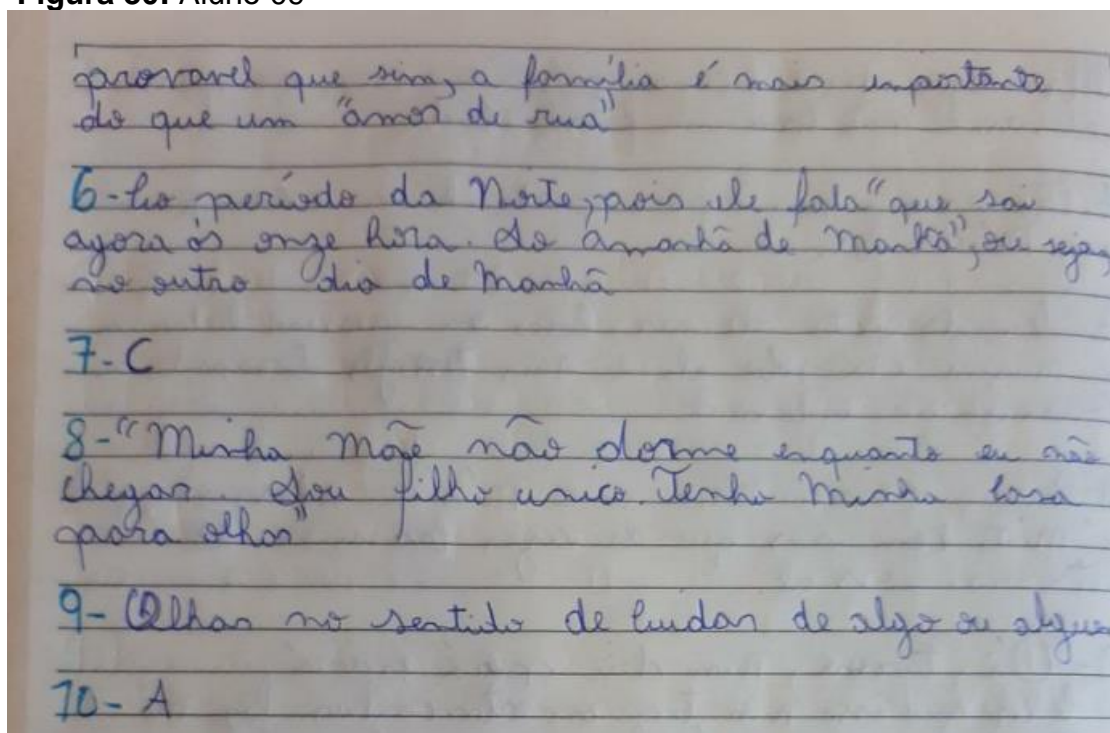 provavel que sim, a família é mais importante
do que um "amor de rua"
6- No período da Noite, pois ele fala "que sai
agora ás onze hora. Só amanhã de manhã", ou seja,
no outro dia de manhã
7- C
8- "Minha mãe não dorme enquanto eu não
chegar. Sou filho unico. Tenho minha casa
para olhar"
9- Olhar no sentido de cuidar de algo ou
10- A